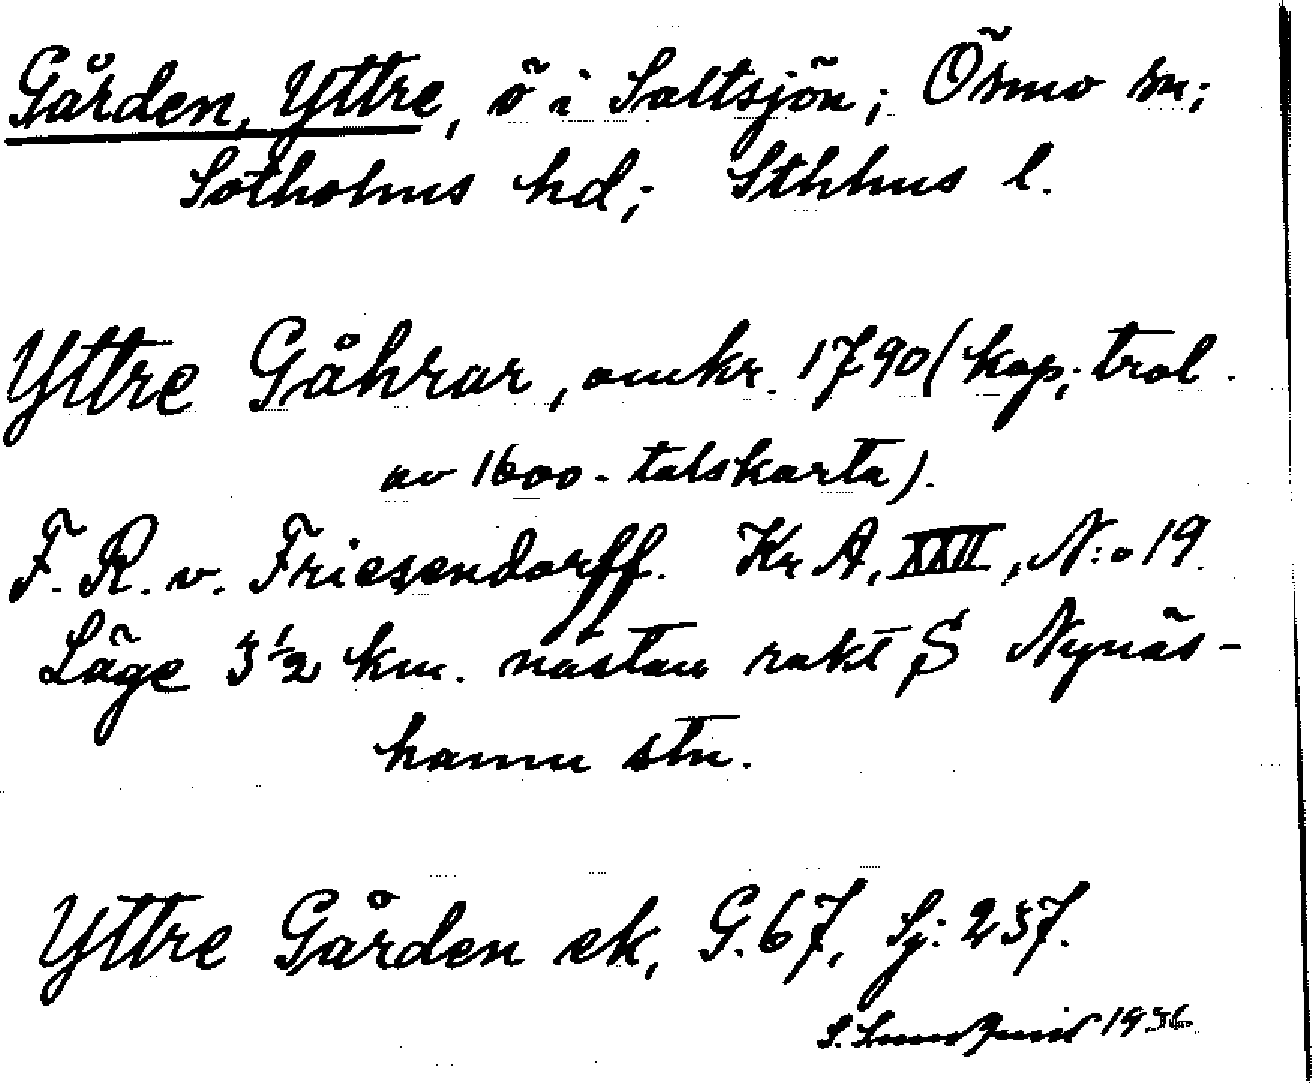 Gården, Yttre, ö i Saltsjön; Ösmo sn;
Sotholms hd; Sthlms l.
Yttre Gåhrar, omkr. 1790 (kop; trol.
av 1600-talskarta).
F. R. v. Friesendorff. Kr A, XXII, N:o 19.
Läge 3 1/2 km. nästan rakt S Nynäs-
hamn stn.
Yttre Gården ek, G. 67, Sj: 237.
S. Lundquist 1936